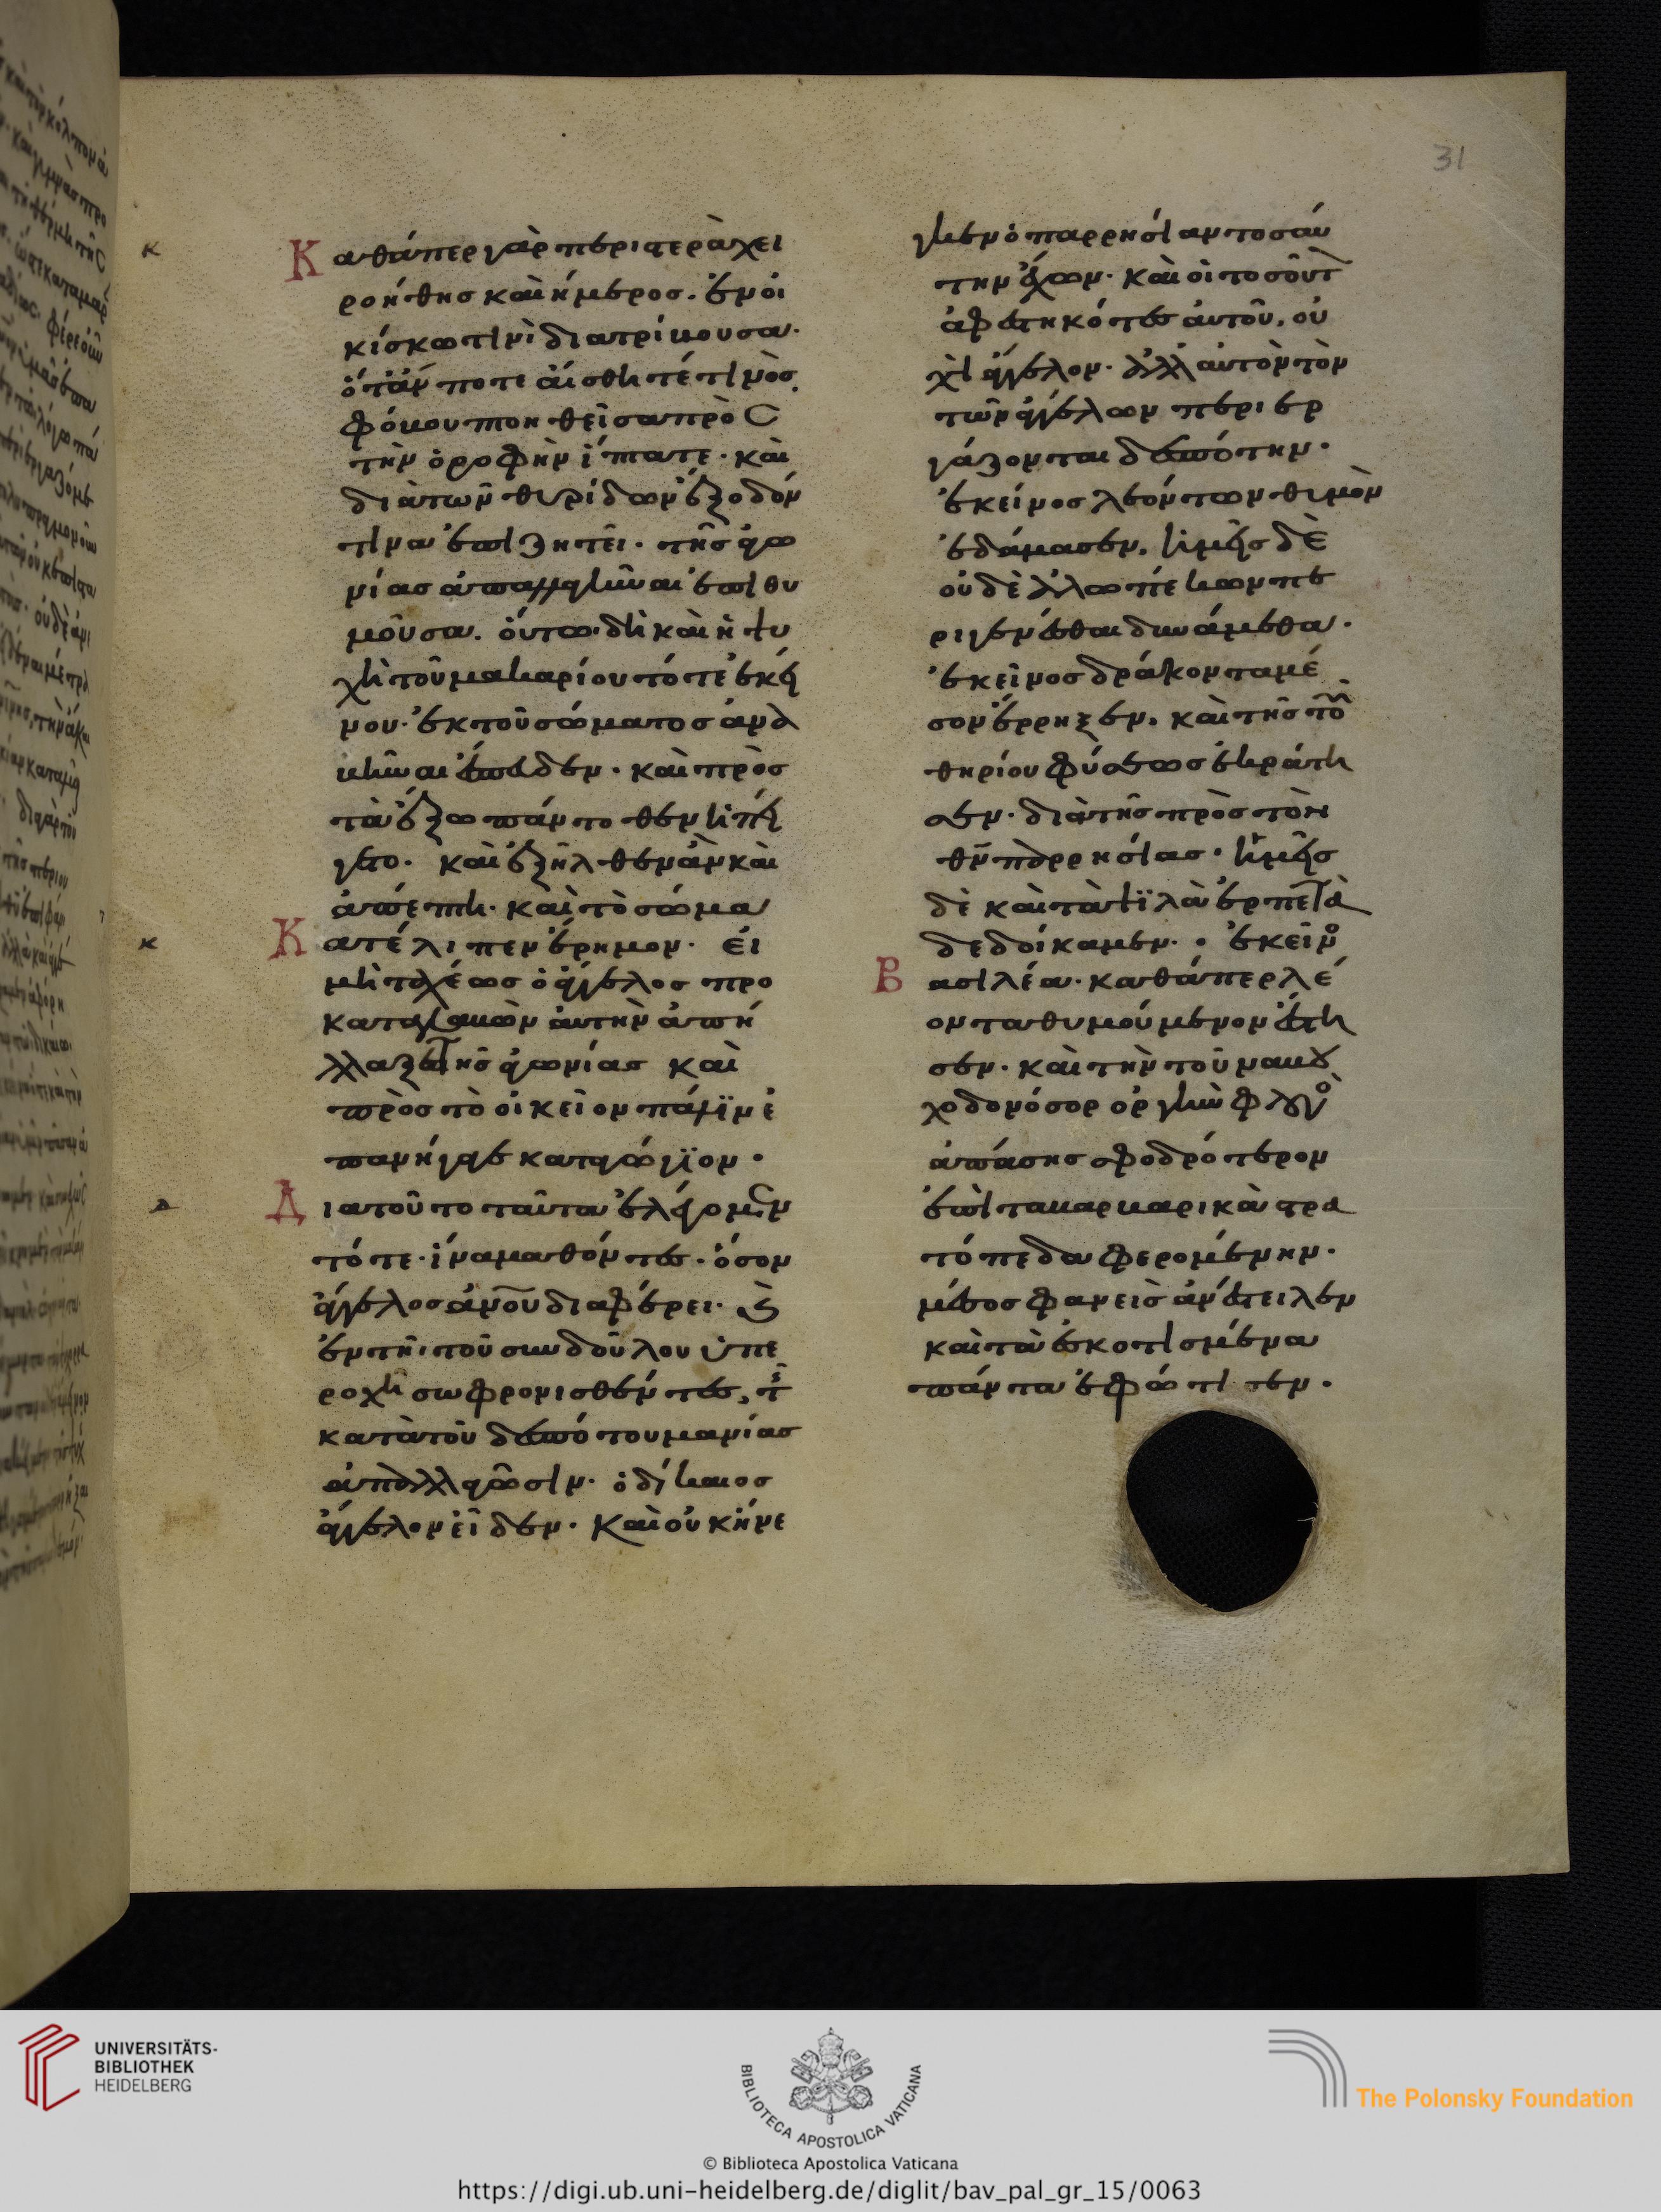 31
κ
Καθάπερ γὰρ περιστερὰ χει
ροήθησ καὶ ἥμεροσ. ἐν οἰ
κίσκω τινὶ διατρίβουσα.
ὅτἂν ποτε αἴσθητέ τινὸσ.
φόβου πτοηθεῖσα πρὸσ
τὴν ὀροφὴν ἵπτατε. καὶ
διὰ τῶν θυρίδων ἔξοδόν
τινα ἐπιζητεῖ. τῆσ ἀγω
νίασ ἀπαλλαγῆναι ἐπιθυ
μοῦσα. οὕτω δὴ καὶ ἡ ψυ
χὴ τοῦ μακαρίου τότε ἐκεί
νου. ἐκ τοῦ σώματοσ ἀνα
βῆναι ἔσπευδεν. καὶ πρὸσ
τὰ ἔξω πάντοθεν ἠπεί
γετο. καὶ ἐξῆλθεν ἂν καὶ
ἀπέπτη. καὶ τὸ σῶμα
κ
Κατέλιπεν ἔρημον. εἰ
μὴ ταχέωσ ὁ ἄγγελοσ προ
καταλαβὼν αὐτὴν ἀπή
λλαξε τῆσ ἀγωνίασ καὶ
πρὸσ τὸ οἰκεῖον πάλιν ἐ
πανήγαγε καταγώγιον.
δ
Διατοῦτο ταῦτα ἐλέγομεν
τότε. ἵνα μαθόντεσ. ὅσον
ἄγγελοσ ἀνοῦ διαφέρει. καὶ
ἐν τῆ τοῦ συνδούλου ὑπε
ροχῆ σωφρονισθέντεσ, τῆσ
κατὰ τοῦ δεσπότου μανίασ
ἀπαλλαγῶσιν. ὁ δίκαιοσ
ἄγγελον εἶδεν. Καὶ οὐκ ἤνε
γκεν ὁ παρρησίαν τοσαύ
την ἔχων. καὶ οἱ τοσοῦτον
ἀφεστηκότεσ αὐτοῦ, οὐ
χὶ ἄγγελον. ἀλλ αὐτὸν τὸν
τῶν ἀγγέλων περιερ
γάζονται δεσπότην.
ἐκεῖνοσ λεόντων θυμὸν
ἐδάμασεν, ἡμεῖσ δὲ
οὐδὲ ἀλωπέκων πε
ριγενέσθαι δυνάμεθα.
ἐκεῖνοσ δράκοντα μέ
σον ἔρρηξεν, καὶ τῆσ τοῦ
θηρίου φύσεωσ ἐκράτη
σεν. διὰ τῆσ πρὸσ τὸν
θν παρρησίασ. ἡμεῖσ
δὲ καὶ τὰ ψιλὰ ἑρπετὰ
δεδοίκαμεν. ἐκεῖνοσ
Βασιλέα. καθάπερ λέ
οντα θυμούμενον ἔστη
σεν. καὶ τὴν τοῦ ναβου
χοδονόσορ ὀργὴν φλογὸσ
ἁπάσησ σφοδρότερον
ἐπὶ τα βαρβαρικὰ στρα
τόπεδα φερομένην.
μέσοσ φανεὶσ ἀνέστειλεν
καὶ τὰ ἐσκοτισμένα
πάντα ἐφώτισεν.
UNIVERSITÄTS-
BIBLIOTHEK
HEIDELBERG
BIBLIOTECA APOSTOLICA VATICANA
The Polonsky Foundation
© Biblioteca Apostolica Vaticana
https://digi.ub.uni-heidelberg.de/diglit/bav_pal_gr_15/0063